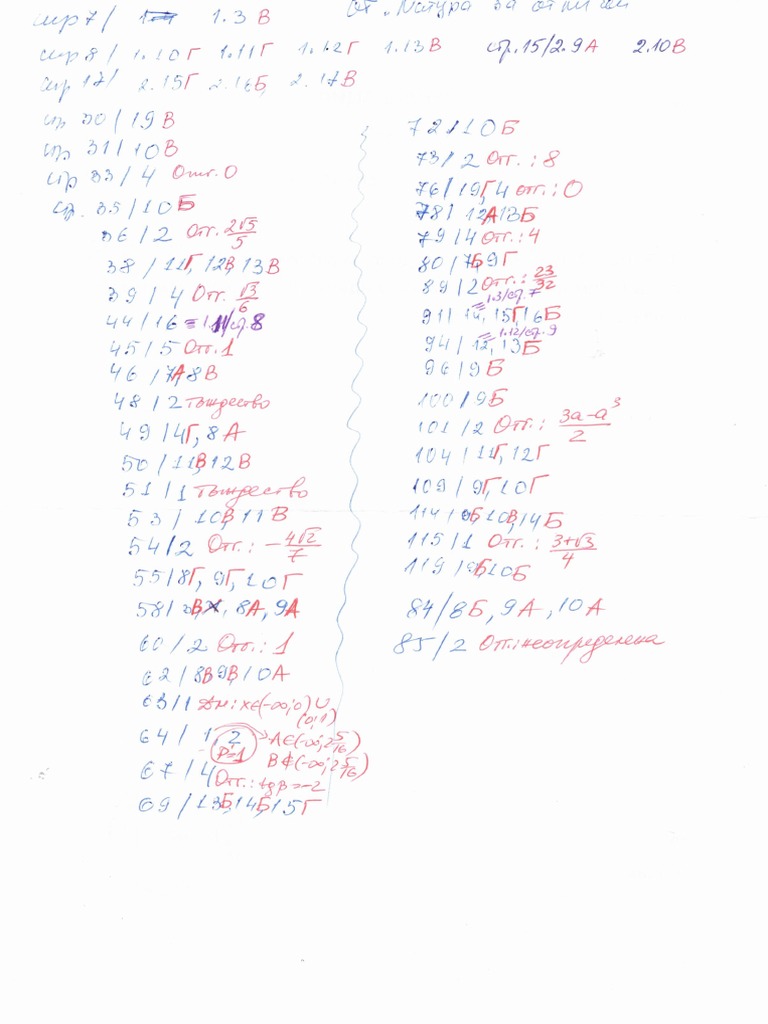 от „Матура за отличен
стр 7 / 1.3 В
стр 8 / 1.10 Г 1.11 Г 1.12 Г 1.13 В стр. 15 / 2.9 А 2.10 В
стр 17 / 2.15 Г 2.16 Б, 2.17 В
стр 30 / 19 В
стр 31 / 10 В
стр 33 / 4 Отг. 0
стр. 35 / 10 Б
36 / 2 Отг. 2√5/5
38 / 11Г, 12В, 13 В
39 / 4 Отг. √3/6
44 / 16 = 1.11/стр. 8
45 / 5 Отг. 1
46 / 7А, 8 В
48 / 2 тъждество
49 / 4Г, 8 А
50 / 11В, 12 В
51 / 1 тъждество
53 / 10В, 11 В
54 / 2 Отг.: -4√2/7
55 / 8Г, 9Г, 10 Г
58 / В, 8А, 9А
60 / 2 Отг.: 1
62 / 8В, 9В, 10 А
63 / 1 ДМ: x∈(-∞; 0) ∪ (0; 1)
64 / 1, 2 P=1 А∈(-∞; 2 5/16)
В∉(-∞; 2 5/16)
67 / 4 Отг.: tg β = -2
69 / 13Б, 14Б, 15 Г
72 / 10 Б
73 / 2 Отг.: 8
76 / 19Г, 4 отг.: 0
78 / 12А, 13 Б
79 / 4 Отг.: 4
80 / 7Б, 9 Г
89 / 2 Отг.: 23/32
91 / 14, 15Г, 16 Б = 1.3/стр. 7
94 / 12, 13 Б = 1.12/стр. 9
96 / 9 Б
100 / 9 Б
101 / 2 Отг.: 3a-a³/2
104 / 11Г, 12 Г
109 / 9Г, 10 Г
114 / 9Б, 10В, 14 Б
115 / 1 Отг.: 3+√3/4
119 / 9Б, 10 Б
84 / 8 Б, 9 А, 10 А
85 / 2 Отг.: неопределена